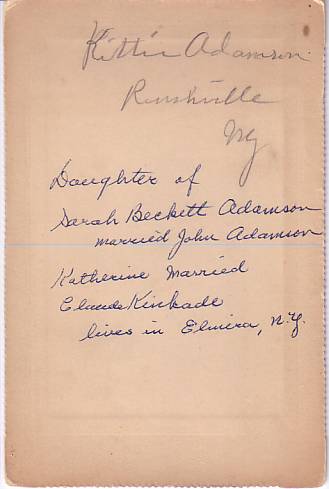 Kittie Adamson
Rushville
NY
Daughter of
Sarah Beckett Adamson
married John Adamson
Katherine Married
Claude Kinkade
lives in Elmira, N.Y.